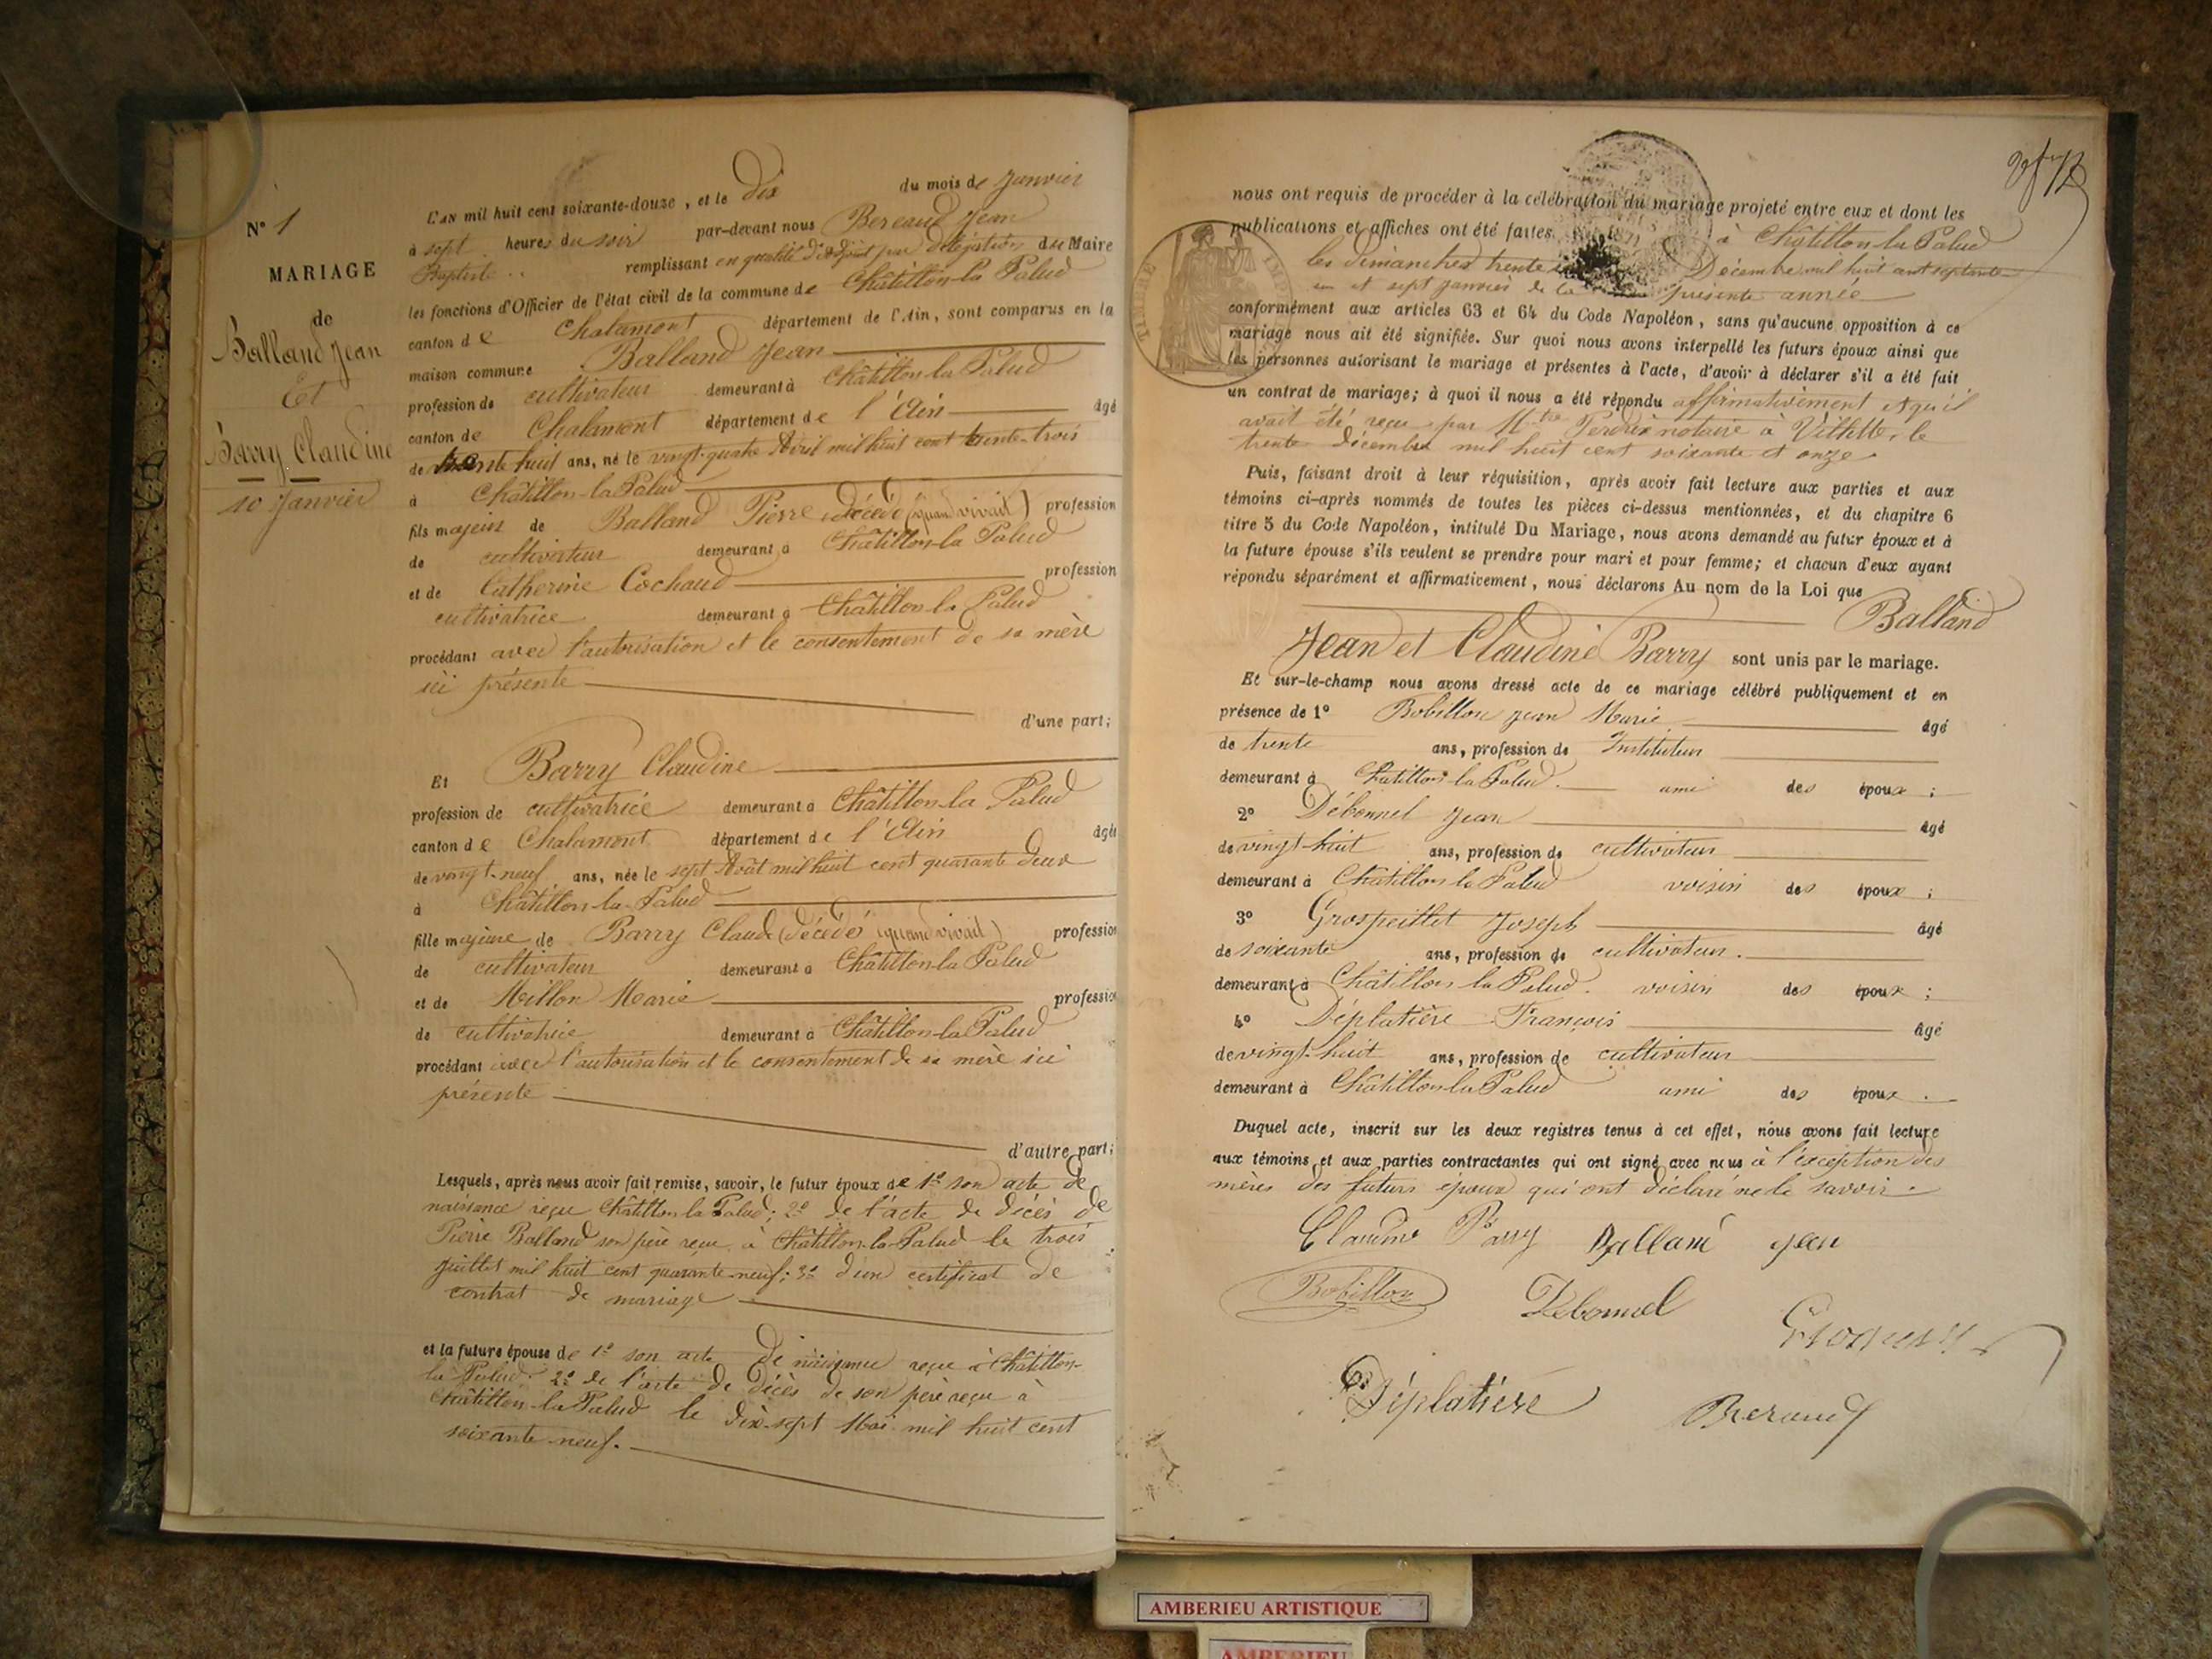 N° 1
MARIAGE
de
Balland Jean
Et
Barry Claudine
10 Janvier
L'AN mil huit cent soixante-douze, et le dix du mois de Janvier
à sept heures du soir par-devant nous Bereaud Jean
Baptiste remplissant en qualité d'adjoint par délégation du Maire
les fonctions d'Officier de l'état civil de la commune de Châtillon-la Palud
canton de Chalamont département de l'Ain, sont comparus en la
maison commune Balland Jean
profession de cultivateur demeurant à Châtillon la Palud
canton de Chalamont département de l'Ain âgé
de trente huit ans, né le vingt-quatre Avril mil huit cent trente-trois
à Châtillon-la Palud
fils majeur de Balland Pierre décédé (quand vivait) profession
de cultivateur demeurant à Châtillon-la Palud
et de Catherine Cochaud profession
cultivatrice demeurant à Châtillon-la Palud
procédant avec l'autorisation et le consentement de sa mère
ici présente
d'une part;
Et Barry Claudine
profession de cultivatrice demeurant à Châtillon-la Palud
canton de Chalamont département de l'Ain âgée
de vingt-neuf ans, née le sept Août mil huit cent quarante deux
à Châtillon-la-Palud
fille majeure de Barry Claude (décédé (quand vivait) profession
de cultivateur demeurant à Châtillon-la Palud
et de Millon Marie profession
de cultivatrice demeurant à Châtillon-la Palud
procédant avec l'autorisation et le consentement de sa mère ici
présente
d'autre part;
Lesquels, après nous avoir fait remise, savoir, le futur époux de 1° son acte de
naissance reçu Châtillon la Palud; 2° de l'acte de décès de
Pierre Balland son père reçu à Châtillon-la-Palud le trois
juillet mil huit cent quarante-neuf; 3° d'un certificat de
contrat de mariage
et la future épouse de 1° son acte de naissance reçu à Châtillon-
la Palud; 2° de l'acte de décès de son père reçu à
Châtillon-la Palud le dix-sept Mai mil huit cent
soixante-neuf.
nous ont requis de procéder à la célébration du mariage projeté entre eux et dont les
publications et affiches ont été faites à Châtillon-la Palud
les dimanches trente et Décembre mil huit cent septante-
un et sept janvier de la présente année
conformément aux articles 63 et 64 du Code Napoléon, sans qu'aucune opposition à ce
mariage nous ait été signifiée. Sur quoi nous avons interpellé les futurs époux ainsi que
les personnes autorisant le mariage et présentes à l'acte, d'avoir à déclarer s'il a été fait
un contrat de mariage; à quoi il nous a été répondu affirmativement et qu'il
avait été reçu par Mtre Perdrix notaire à Villette, le
trente décembre mil huit cent soixante et onze
Puis, faisant droit à leur réquisition, après avoir fait lecture aux parties et aux
témoins ci-après nommés de toutes les pièces ci-dessus mentionnées, et du chapitre 6
titre 5 du Code Napoléon, intitulé Du Mariage, nous avons demandé au futur époux et à
la future épouse s'ils veulent se prendre pour mari et pour femme; et chacun d'eux ayant
répondu séparément et affirmativement, nous déclarons Au nom de la Loi que
Balland
Jean et Claudine Barry sont unis par le mariage.
Et sur-le-champ nous avons dressé acte de ce mariage célébré publiquement et en
présence de 1° Bobillon Jean Marie âgé
de trente ans, profession de Instituteur
demeurant à Châtillon-la Palud. ami des époux ;
2° Débonnel Jean âgé
de vingt-huit ans, profession de cultivateur
demeurant à Châtillon la Palud voisin des époux ;
3° Grospeillet Joseph âgé
de soixante ans, profession de cultivateur.
demeurant à Châtillon la Palud. voisin des époux ;
4° Déplatière François âgé
de vingt-huit ans, profession de cultivateur
demeurant à Châtillon la Palud ami des époux .
Duquel acte, inscrit sur les deux registres tenus à cet effet, nous avons fait lecture
aux témoins et aux parties contractantes qui ont signé avec nous à l'exception des
mères des futurs époux qui ont déclaré ne le savoir.
Claudine Barry Balland Jean
Bobillon Debonnel
Déplatière Bereaud
TIMBRE IMP
AMBERIEU ARTISTIQUE
AMBERIEU